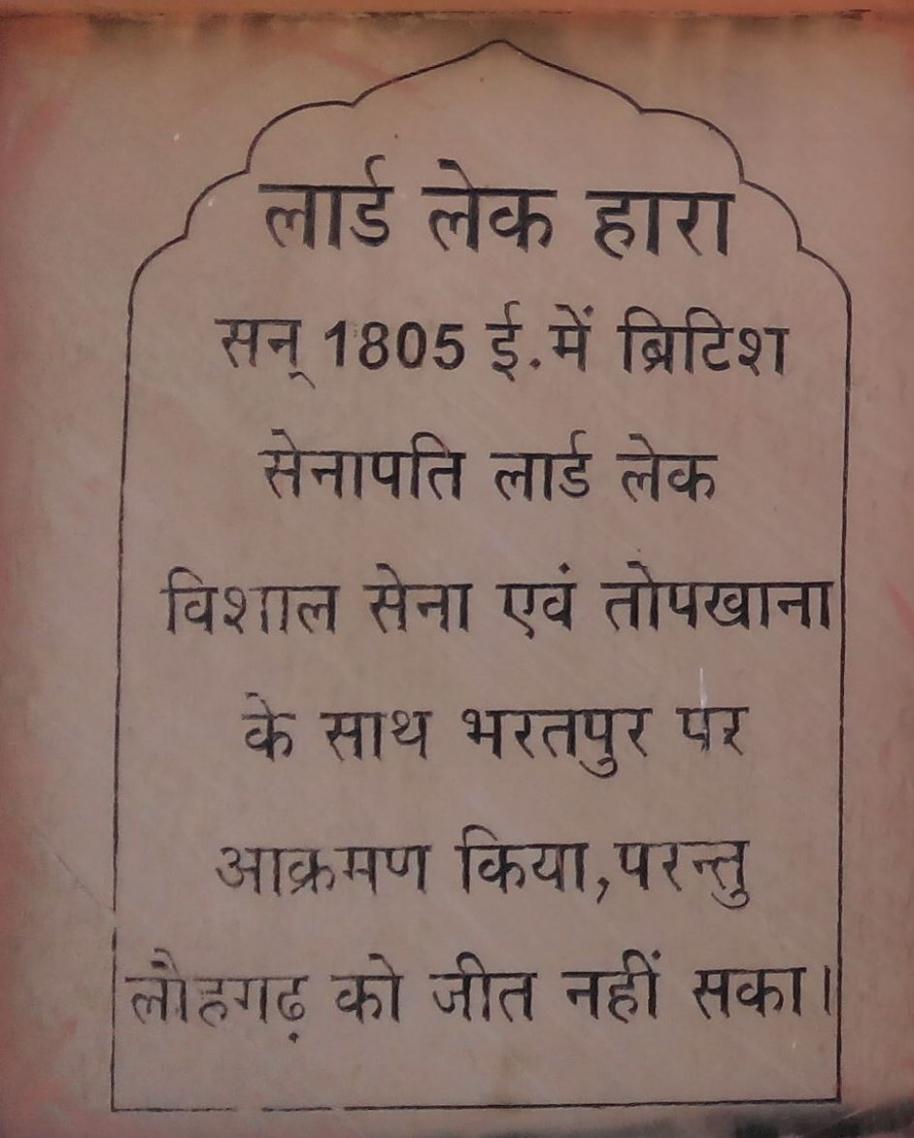 लार्ड लेक हारा
सन् 1805 ई. में ब्रिटिश
सेनापति लार्ड लेक
विशाल सेना एवं तोपखाना
के साथ भरतपुर पर
आक्रमण किया, परन्तु
लौहगढ़ को जीत नहीं सका।